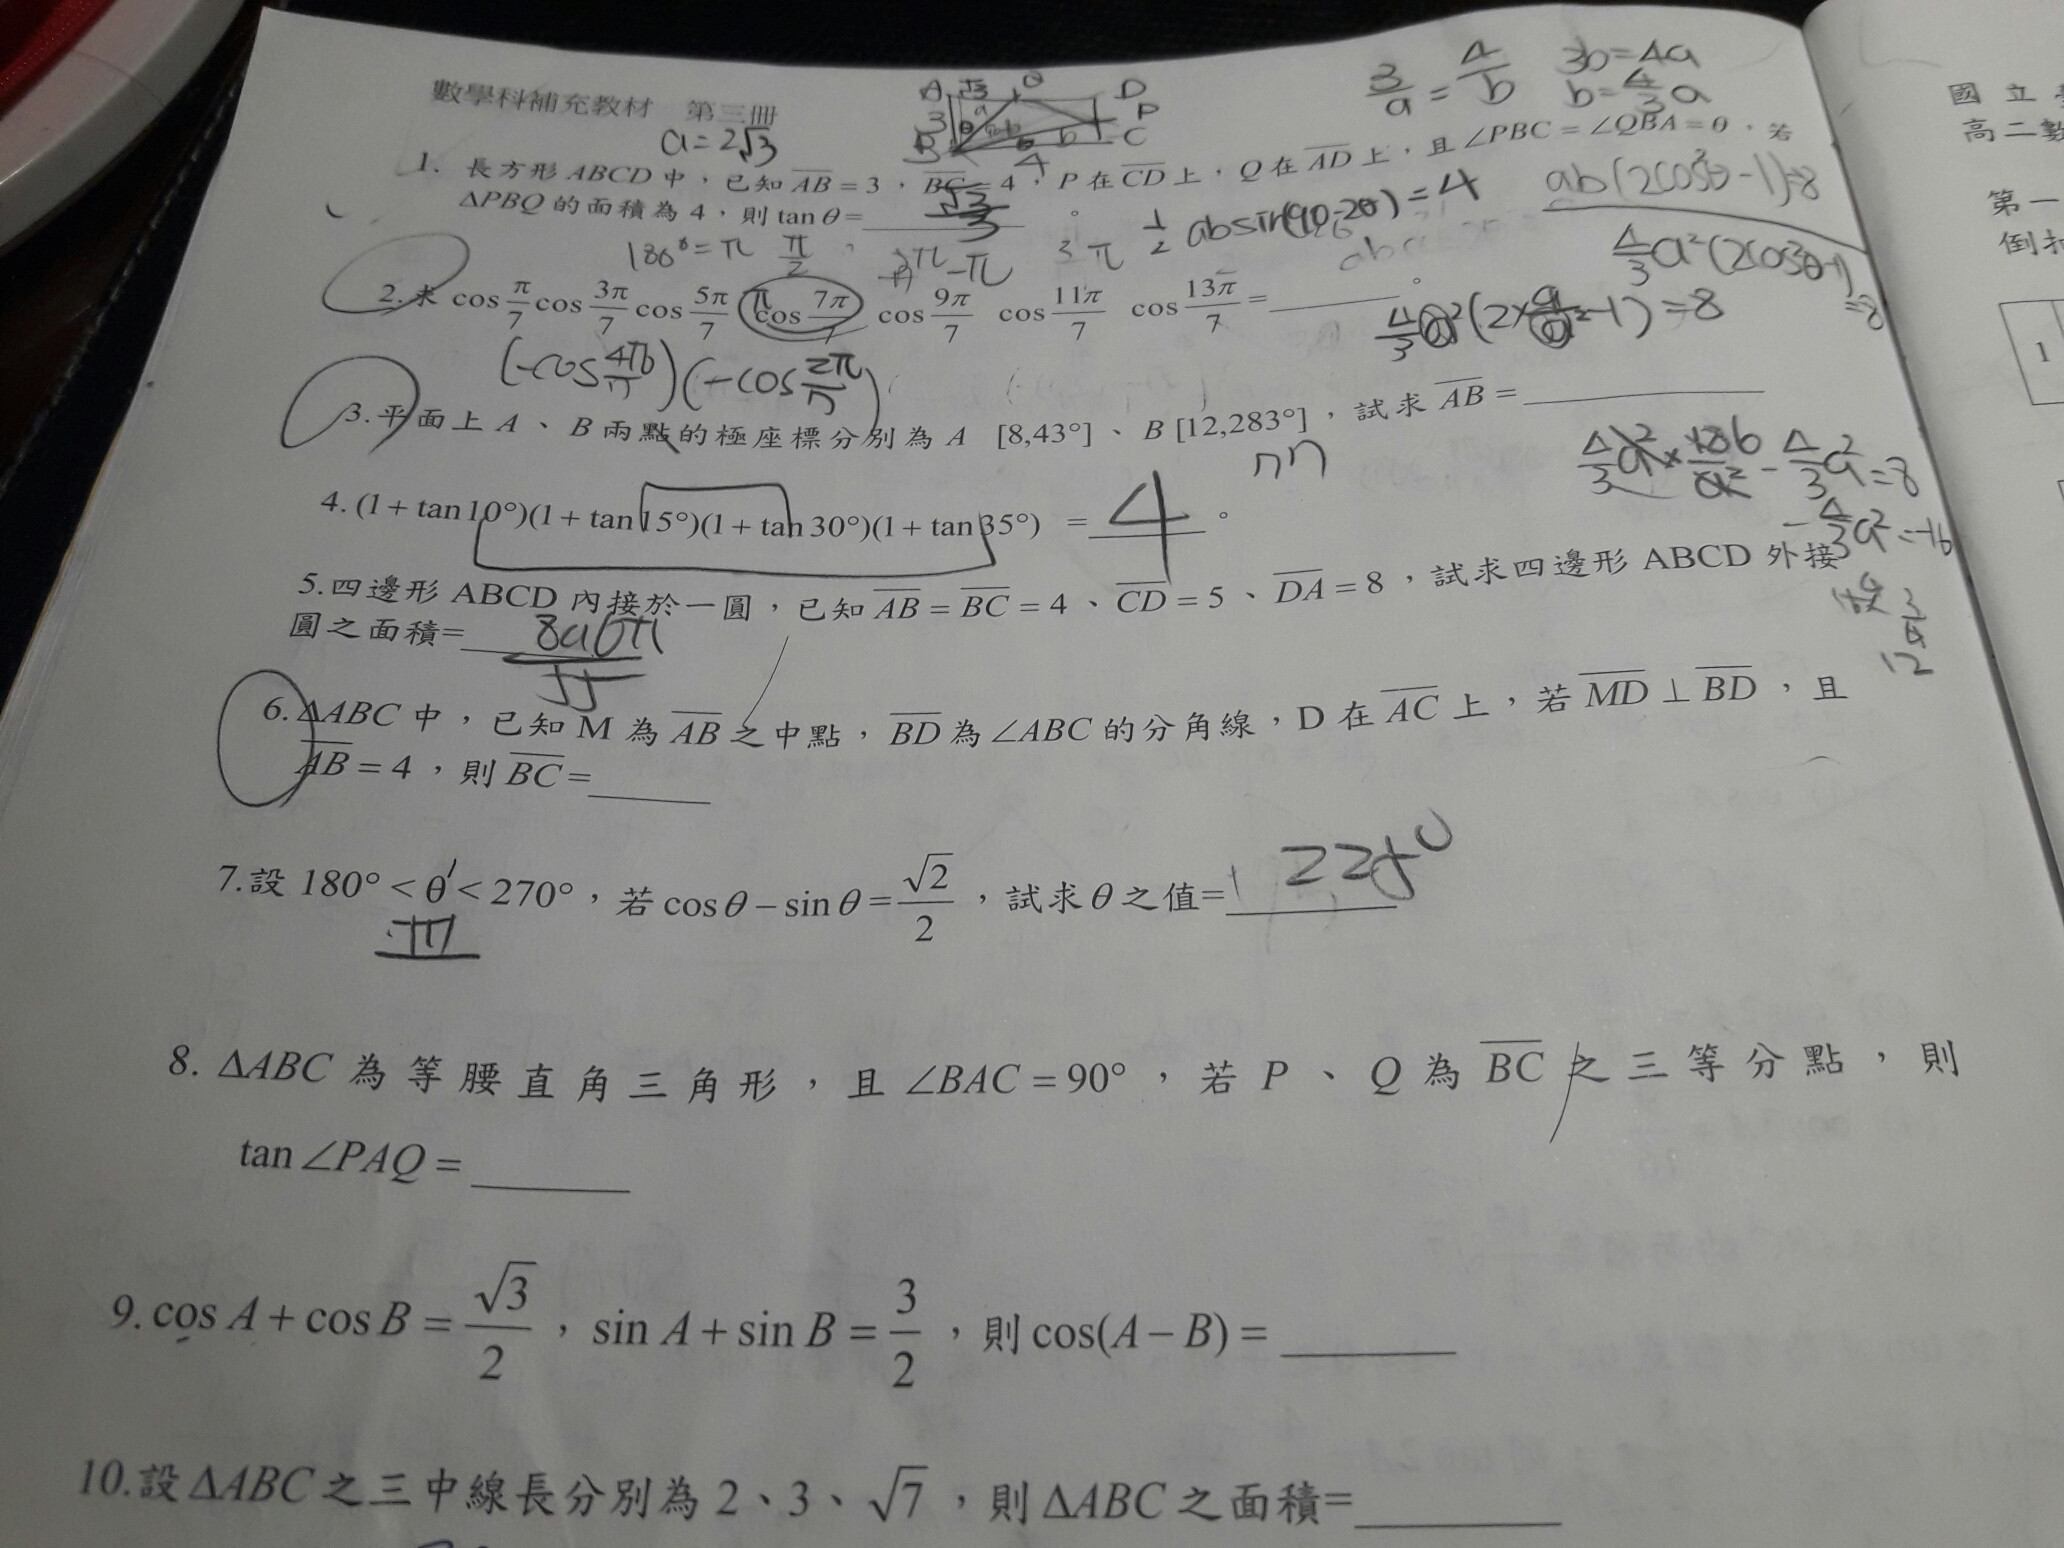 數學科補充教材 第三冊
a=2√3
A √3 Q D
3 a P
B b C
4
3/a = 4/b 3b=4a
b=4/3a
國立
高二數
1. 長方形 ABCD 中，已知 AB = 3，BC = 4，P 在 CD 上，Q 在 AD 上，且 ∠PBC = ∠QBA = θ，若
ΔPBQ 的面積為 4，則 tan θ = √3/3。
1/2 ab sin(90-2θ) = 4
ab(2cos²θ-1)=8
4/3a²(2cos²θ-1)=8
第一
倒扣
180°=π π/2 -π 3π
2. 求 cos π/7 cos 3π/7 cos 5π/7 cos 7π/7 cos 9π/7 cos 11π/7 cos 13π/7 = ______。
4/3a²(2×9/a²-1)=8
1
3. 平面上 A、B 兩點的極座標分別為 A [8,43°]、B [12,283°]，試求 AB = ______
4. (1 + tan10°)(1 + tan15°)(1 + tan30°)(1 + tan35°) = 4。
-4/3a²=-16
5. 四邊形 ABCD 內接於一圓，已知 AB = BC = 4、CD = 5、DA = 8，試求四邊形 ABCD 外接
圓之面積=
12
6. ΔABC 中，已知 M 為 AB 之中點，BD 為 ∠ABC 的分角線，D 在 AC 上，若 MD ⊥ BD，且
AB = 4，則 BC = ______
7. 設 180° < θ < 270°，若 cosθ − sinθ = √2/2，試求 θ 之值=
8. ΔABC 為等腰直角三角形，且 ∠BAC = 90°，若 P、Q 為 BC 之三等分點，則
tan ∠PAQ = ______
9. cos A + cos B = √3/2，sin A + sin B = 3/2，則 cos(A − B) = ______
10. 設 ΔABC 之三中線長分別為 2、3、√7，則 ΔABC 之面積= ______